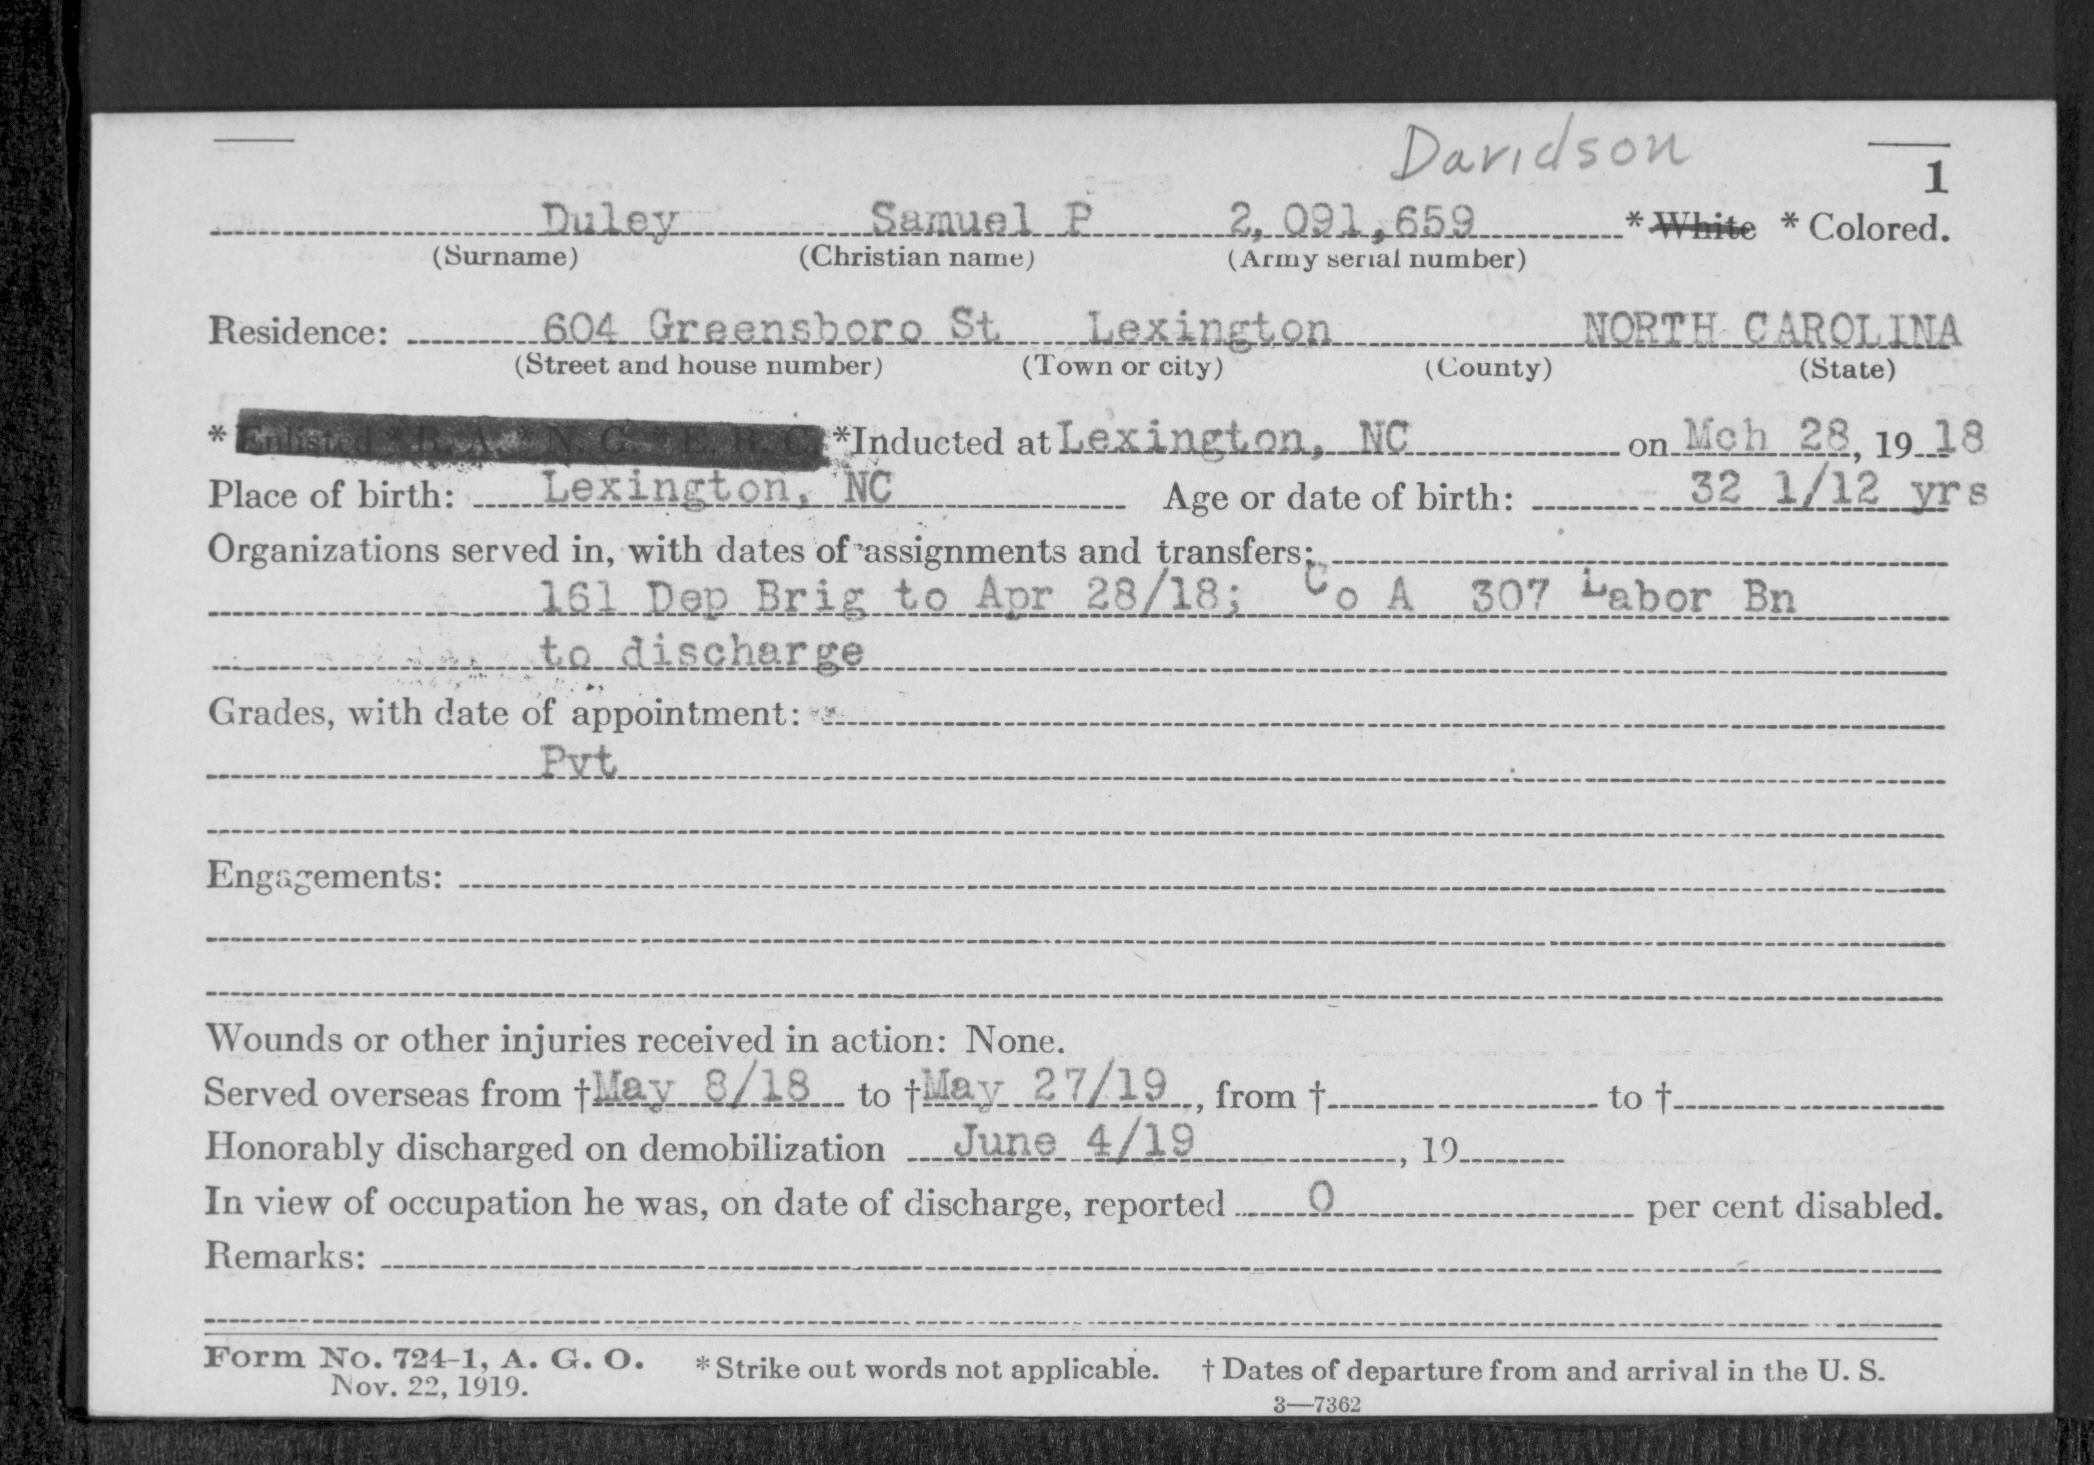 Davidson
1
Duley Samuel P 2,091,659 * White * Colored.
(Surname) (Christian name) (Army serial number)
Residence: 604 Greensboro St Lexington NORTH CAROLINA
(Street and house number) (Town or city) (County) (State)
* Enlisted * R. A. * N. G. * E. R. C. *Inducted at Lexington, NC on Mch 28, 19 18
Place of birth: Lexington, NC Age or date of birth: 32 1/12 yrs
Organizations served in, with dates of assignments and transfers:
161 Dep Brig to Apr 28/18; Co A 307 Labor Bn
to discharge
Grades, with date of appointment:
Pvt
Engagements:
Wounds or other injuries received in action: None.
Served overseas from †May 8/18 to †May 27/19, from † to †
Honorably discharged on demobilization June 4/19, 19
In view of occupation he was, on date of discharge, reported 0 per cent disabled.
Remarks:
Form No. 724-1, A. G. O. *Strike out words not applicable. † Dates of departure from and arrival in the U. S.
Nov. 22, 1919.
3—7362